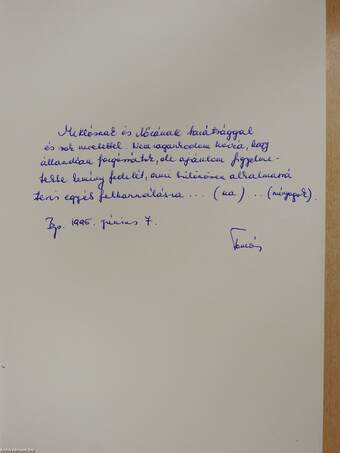 Miklósnak és Nórának barátsággal
és sok szeretettel. Nem ragaszkodom hozzá, hogy
állandóan forgassátok, de ajánlom figyelme-
tekbe kemény fedelét, ami különösen alkalmassá
teszi egyéb felhasználásra ... (na) ... (nányugok).
Bp. 1995. június 7.
Tamás